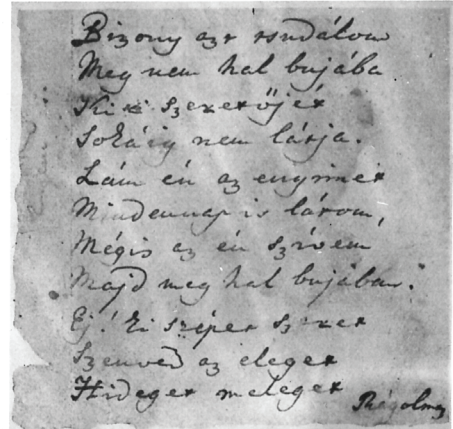 Bizony azt tsudálom
Meg nem hal bujába
Ki szeretőjét
Sokáig nem látja.
Lám én az enyimet
Mindennap is látom,
Mégis az én szívem
Majd meg hal bujában.
Ej! Ki szépet szeret
Szenved az eleget
Hideget meleget